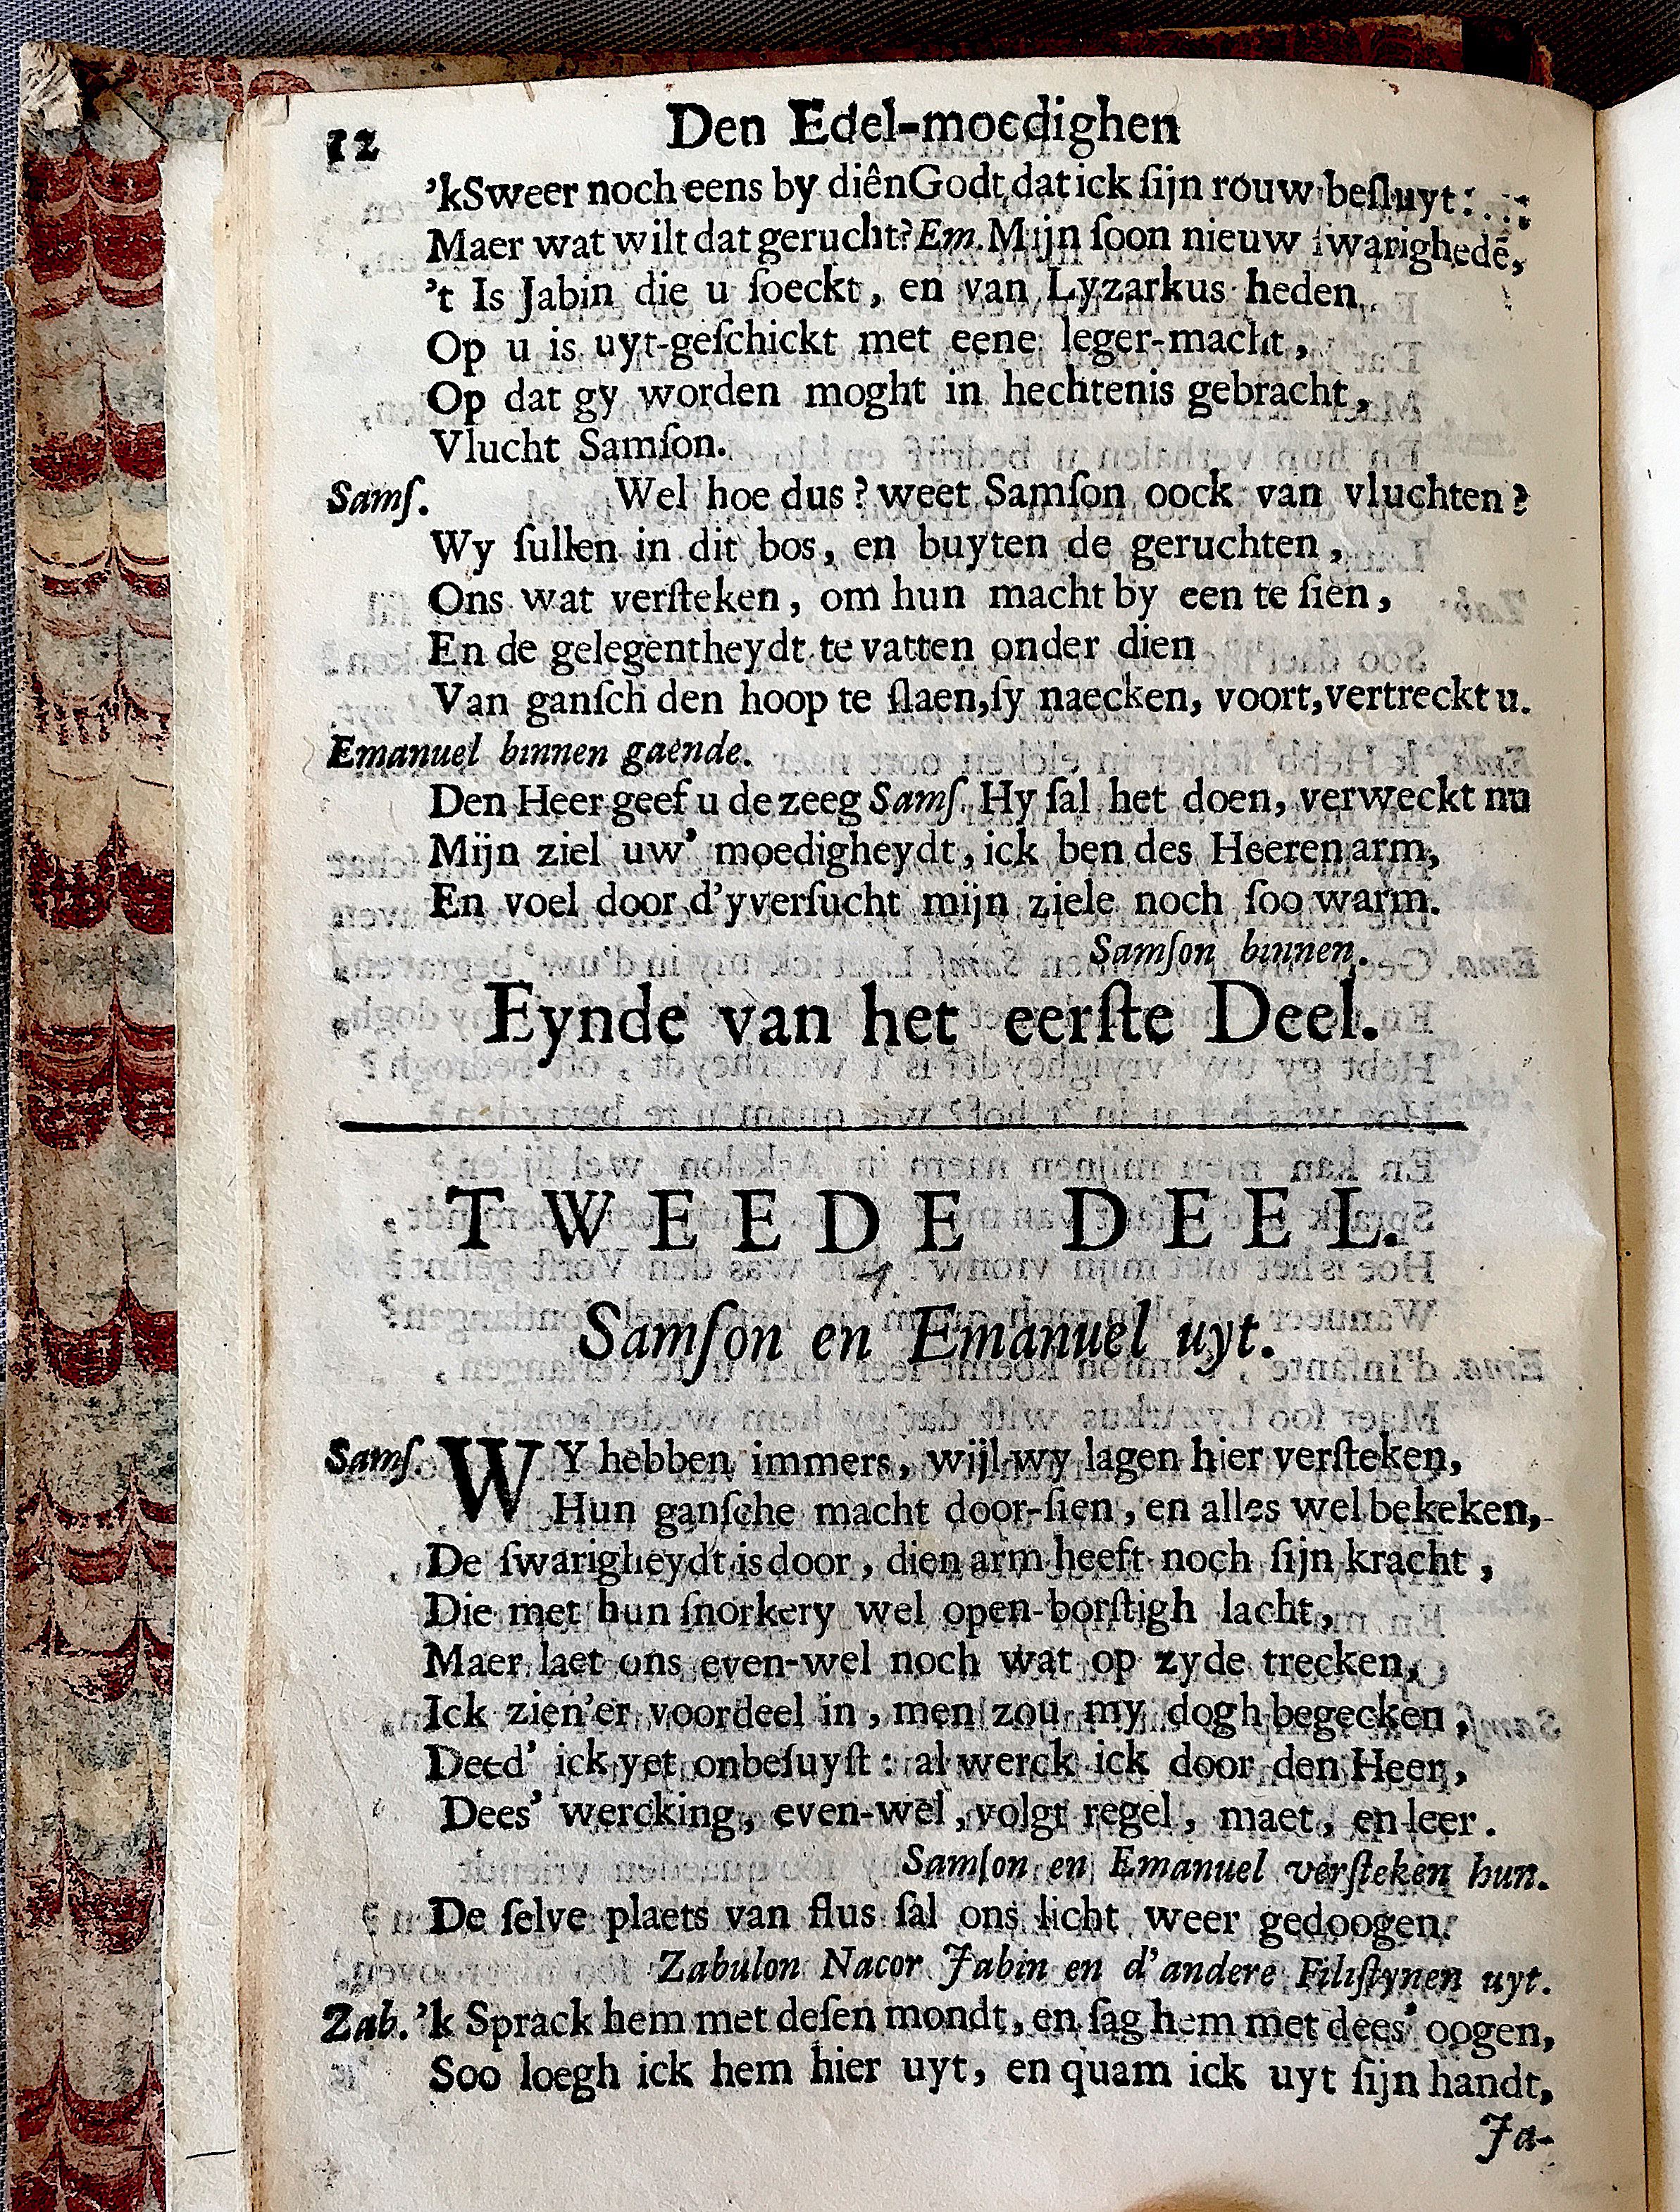 12 Den Edel-moedighen
’kSweer noch eens by diên Godt dat ick ſijn rouw beſluyt:
Maer wat wilt dat gerucht? Em. Mijn ſoon nieuw ſwarighedē,
’t Is Jabin die u ſoeckt, en van Lyzarkus heden
Op u is uyt-geſchickt met eene leger-macht,
Op dat gy worden moght in hechtenis gebracht,
Vlucht Samſon.
Samſ. Wel hoe dus? weet Samſon oock van vluchten?
Wy ſullen in dit bos, en buyten de geruchten,
Ons wat verſteken, om hun macht by een te ſien,
En de gelegentheydt te vatten onder dien
Van ganſch den hoop te ſlaen, ſy naecken, voort, vertreckt u.
Emanuel binnen gaende.
Den Heer geef u de zeeg Samſ. Hy ſal het doen, verweckt nu
Mijn ziel uw’ moedigheydt, ick ben des Heeren arm,
En voel door d’yverſucht mijn ziele noch ſoo warm.
Samſon binnen.
Eynde van het eerſte Deel.
TWEEDE DEEL.
Samſon en Emanuel uyt.
Samſ. WY hebben immers, wijl wy lagen hier verſteken,
Hun ganſche macht door-ſien, en alles wel bekeken,
De ſwarigheydt is door, dien arm heeft noch ſijn kracht,
Die met hun ſnorkery wel open-borſtigh lacht,
Maer laet ons even-wel noch wat op zyde trecken,
Ick zien’er voordeel in, men zou my dogh begecken,
Deed’ ick yet onbeſuyſt: al werck ick door den Heer,
Dees’ wercking, even-wel, volgt regel, maet, en leer.
Samſon en Emanuel verſteken hun.
De ſelve plaets van flus ſal ons licht weer gedoogen.
Zabulon Nacor Jabin en d’andere Filiſtynen uyt.
Zab. ’k Sprack hem met deſen mondt, en ſag hem met dees’ oogen,
Soo loegh ick hem hier uyt, en quam ick uyt ſijn handt,
Ja-